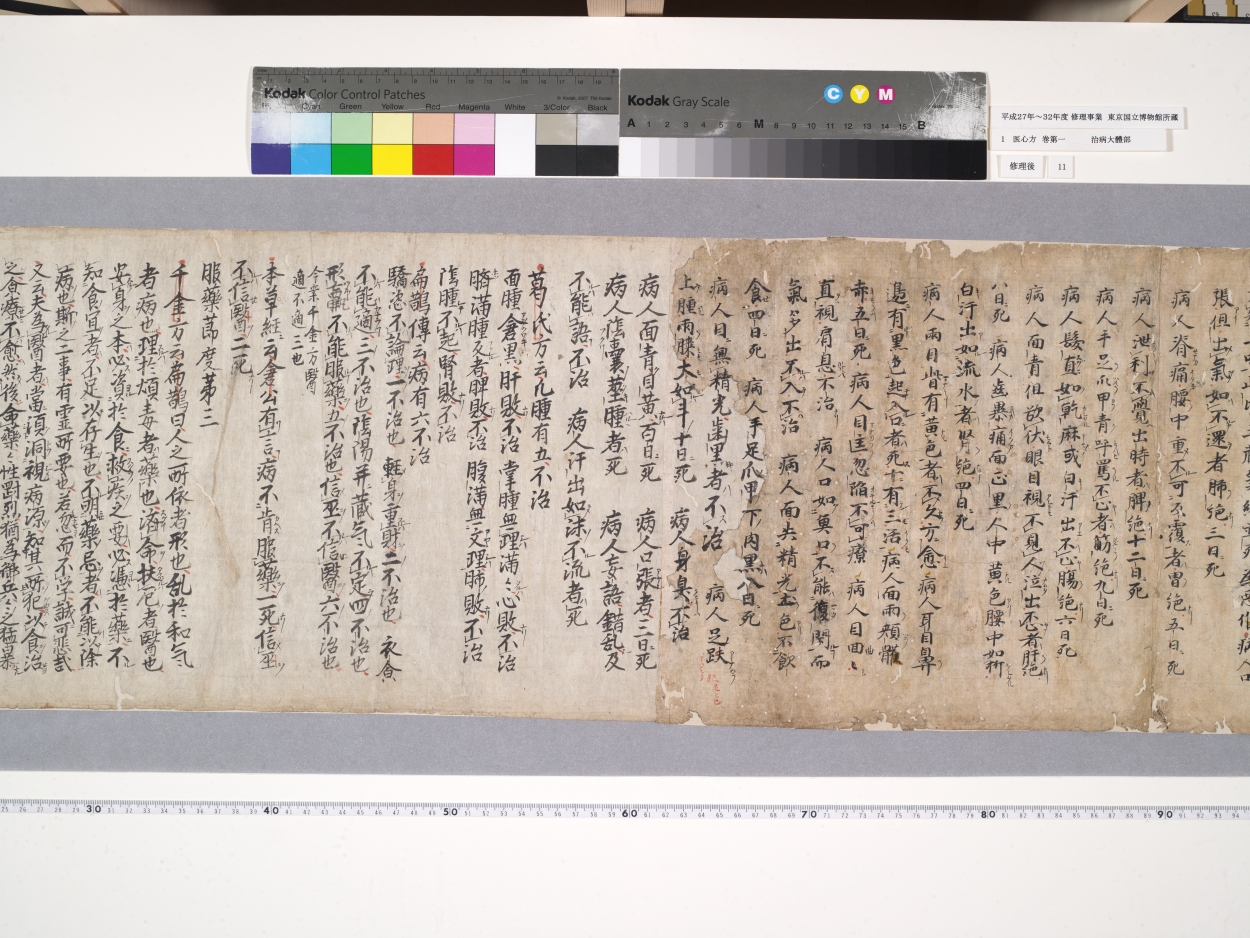 Kodak Color Control Patches
© Kodak, 2007 TM: Kodak
Cyan Green Yellow Red Magenta White 3/Color Black
Kodak Gray Scale
C Y M
A 1 2 3 4 5 6 M 8 9 10 11 12 13 14 15 B
平成27年～32年度 修理事業 東京国立博物館所蔵
1 医心方 巻第一 治病大體部
修理後 11
張但出氣如不還者肺絶三日死
病人脊痛腰中重不可反覆者胃絶五日死
病人泄利不覺出時者脾絶十二日死
病人手足爪甲青呼罵不止者筋絶九日死
病人髮直如乾麻或白汗出不止腸絶六日死
病人面青但欲伏眼目視不見人泣出不止者肝絶
八日死 病人齒暴痛面正黑人中黄色腰中如折
白汗出如流水者腎絶四日死
病人兩目眥有黄色者不久方愈病人耳目鼻
邊有黑色起入口者死十有三活病人面兩頰
赤五日死 病人目匡忽陷不可療 病人目回回
直視肩息不治 病人口如魚口不能復閇而
氣多出不入不治 病人面失精光土色不飲
食四日死 病人手足爪甲下肉黑八日死
病人目無精光齒黑者不治 病人足趺
上腫兩膝大如斗十日死 病人身臭不治
病人面青目黄百日死 病人口張者三日死
病人陰囊莖腫者死 病人妄語錯乱及
不能語不治 病人汗出如沫不流者死
葛氏方云凡腫有五不治
面腫倉黑肝敗不治 掌腫無理滿滿心敗不治
臍滿腫反者脾敗不治 腹滿無文理肺敗不治
陰腫不起腎敗不治
扁鵲傳云病有六不治
驕恣不論理一不治也 輕身重財二不治也 衣食
不能適三不治也 陰陽并蔵氣不定四不治也
形羸不能服藥五不治也 信巫不信醫六不治也
今案千金方醫
適不適三也
本草經云倉公有言病不肯服藥一死信巫
不信醫二死
服藥節度第三
千金方云扁鵲曰人之所依者形也乱於和氣
者病也理於煩毒者藥也濟命扶厄者醫也
安身之本必資於食救疾之要必憑於藥不
知食宜者不足以存生也不明藥忌者不能以除
病也斯之二事有靈所要也若忽而不学誠可悲哉
又云夫為醫者當須洞視病源知其所犯以食治
之食療不愈然後命藥藥性剛烈猶為御兵兵之猛暴
30 40 50 60 70 80 90